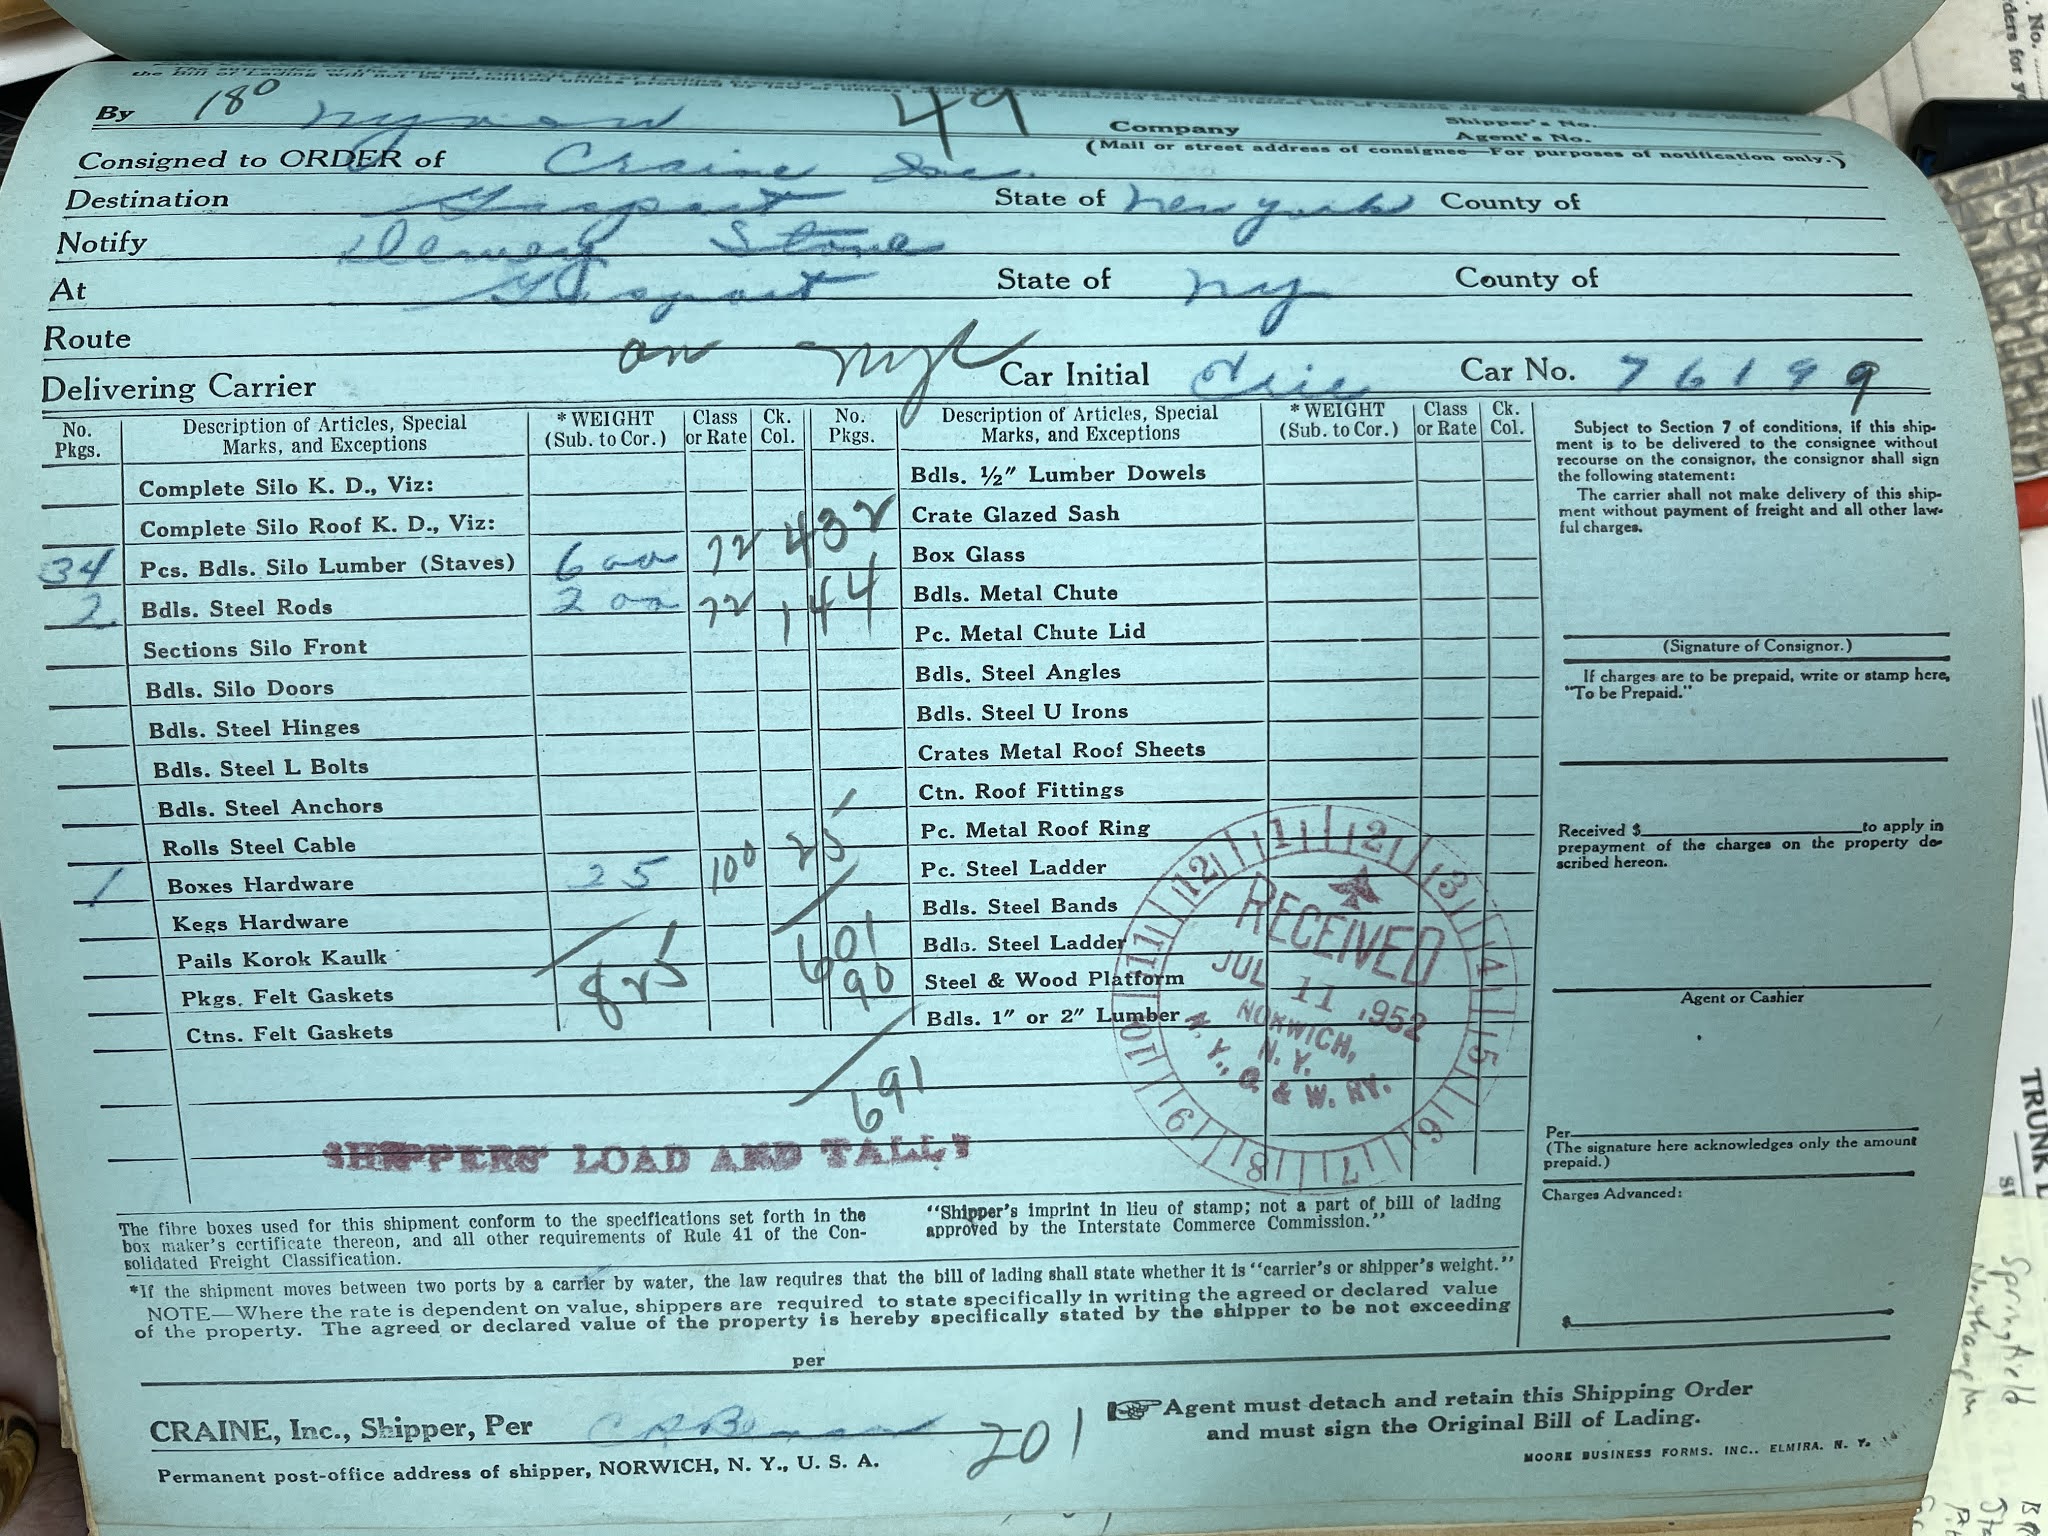 the Bill of Lading will not be permitted unless provided by law or unless
By 180 nyow 49 Company
Shipper's No.
Agent's No.
(Mail or street address of consignee—For purposes of notification only.)
Consigned to ORDER of Craine Inc.
Destination Gasport State of New York County of
Notify Dewey Stone
At Gasport State of Ny County of
Route
on nyc
Delivering Carrier Car Initial Erie Car No. 76199
No. Pkgs. Description of Articles, Special Marks, and Exceptions *WEIGHT (Sub. to Cor.) Class or Rate Ck. Col. No. Pkgs. Description of Articles, Special Marks, and Exceptions *WEIGHT (Sub. to Cor.) Class or Rate Ck. Col.
Complete Silo K. D., Viz:
Complete Silo Roof K. D., Viz:
34 Pcs. Bdls. Silo Lumber (Staves) 600 72 432
2 Bdls. Steel Rods 200 72 144
Sections Silo Front
Bdls. Silo Doors
Bdls. Steel Hinges
Bdls. Steel L Bolts
Bdls. Steel Anchors
Rolls Steel Cable
1 Boxes Hardware 25 100 25
Kegs Hardware
Pails Korok Kaulk
Pkgs. Felt Gaskets
Ctns. Felt Gaskets
825
601
90
691
Bdls. ½" Lumber Dowels
Crate Glazed Sash
Box Glass
Bdls. Metal Chute
Pc. Metal Chute Lid
Bdls. Steel Angles
Bdls. Steel U Irons
Crates Metal Roof Sheets
Ctn. Roof Fittings
Pc. Metal Roof Ring
Pc. Steel Ladder
Bdls. Steel Bands
Bdls. Steel Ladder
Steel & Wood Platform
Bdls. 1" or 2" Lumber
12 1 2 3 4 5 6 7 8 9 10 11
RECEIVED
JUL 11 1952
NORWICH,
N. Y.
N. Y., O. & W. RY.
SHIPPERS' LOAD AND TALLY
Subject to Section 7 of conditions, if this ship-
ment is to be delivered to the consignee without
recourse on the consignor, the consignor shall sign
the following statement:
The carrier shall not make delivery of this ship-
ment without payment of freight and all other law-
ful charges.
(Signature of Consignor.)
If charges are to be prepaid, write or stamp here,
"To be Prepaid."
Received $ to apply in
prepayment of the charges on the property de-
scribed hereon.
Agent or Cashier
Per
(The signature here acknowledges only the amount
prepaid.)
Charges Advanced:
$
The fibre boxes used for this shipment conform to the specifications set forth in the
box maker's certificate thereon, and all other requirements of Rule 41 of the Con-
solidated Freight Classification.
"Shipper's imprint in lieu of stamp; not a part of bill of lading
approved by the Interstate Commerce Commission."
*If the shipment moves between two ports by a carrier by water, the law requires that the bill of lading shall state whether it is "carrier's or shipper's weight."
NOTE—Where the rate is dependent on value, shippers are required to state specifically in writing the agreed or declared value
of the property. The agreed or declared value of the property is hereby specifically stated by the shipper to be not exceeding
per
CRAINE, Inc., Shipper, Per
201
Permanent post-office address of shipper, NORWICH, N. Y., U. S. A.
Agent must detach and retain this Shipping Order
and must sign the Original Bill of Lading.
MOORE BUSINESS FORMS. INC., ELMIRA. N. Y.
No.
TRUNK
Springfield
Northampton